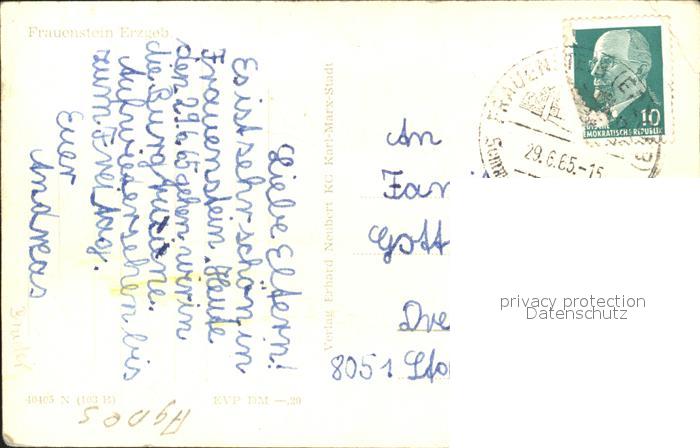 Frauenstein Erzgeb.
Liebe Eltern!
Es ist sehr schön in
Frauenstein. Heute
den 29.6.65 gehen wir in
die Burgruine.
Aufwiedersehen bis
zum Freitag.
Euer
Andreas
40405 N (103 B)
EVP DM —,20
Agnes
Verlag Erhard Neubert KG Karl-Marx-Stadt
FRAUENSTEIN (E
29.6.65.-15
10
DEMOKRATISCHE REPUBLIK
An
Fam
Gott
Dre
8051
privacy protection
Datenschutz